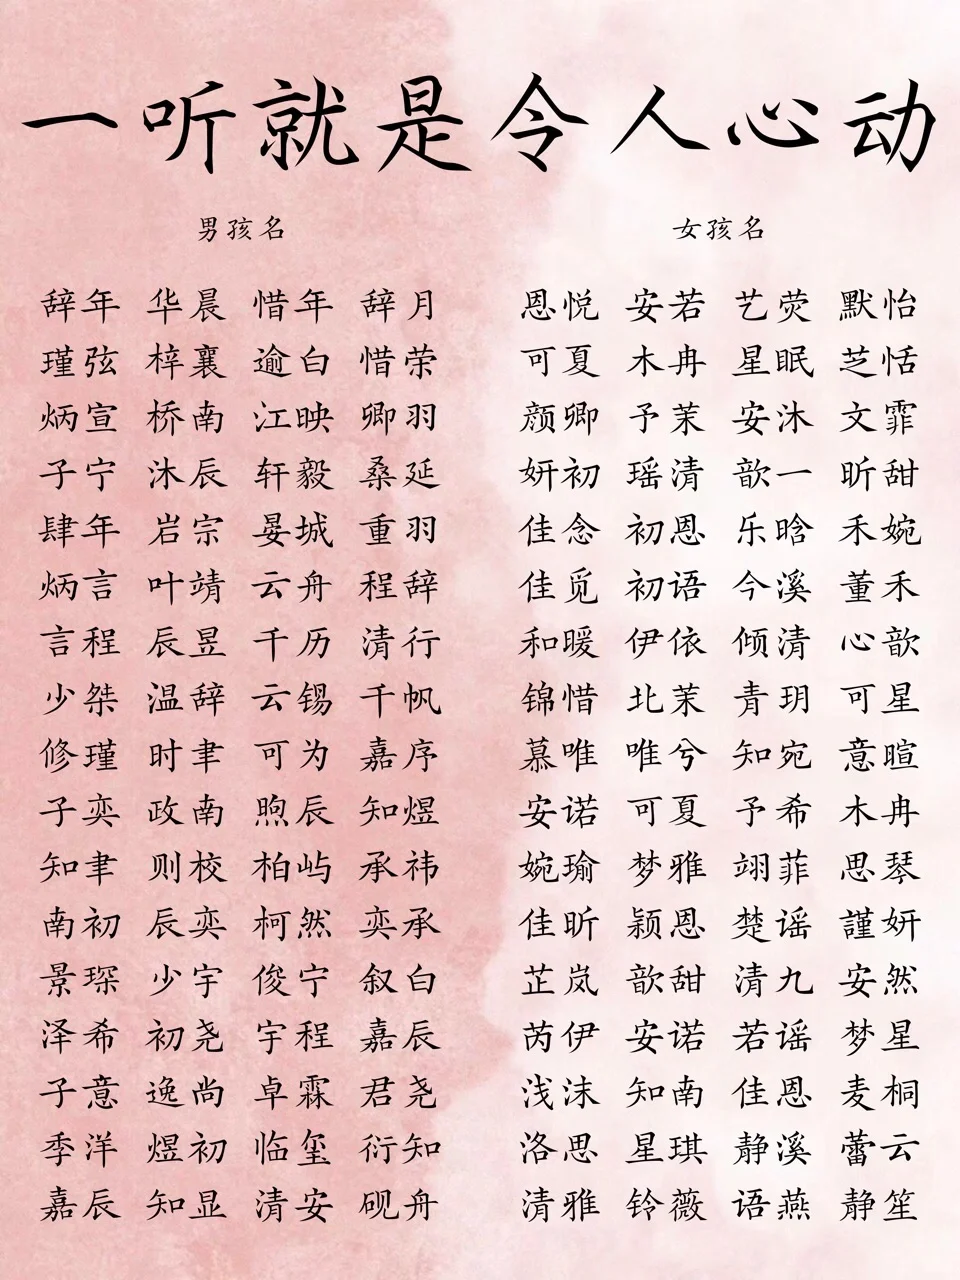 一听就是令人心动
男孩名 女孩名
辞年 华晨 惜年 辞月 恩悦 安若 艺荧 默怡
瑾弦 梓襄 逾白 惜荣 可夏 木冉 星眠 芝恬
炳宣 桥南 江映 卿羽 颜卿 予茉 安沐 文霏
子宁 沐辰 轩毅 桑延 妍初 瑶清 歆一 昕甜
肆年 岩宗 晏城 重羽 佳念 初恩 乐晗 禾婉
炳言 叶靖 云舟 程辞 佳觅 初语 今溪 董禾
言程 辰昱 千历 清行 和暖 伊依 倾清 心歆
少桀 温辞 云锡 千帆 锦惜 北茉 青玥 可星
修瑾 时聿 可为 嘉序 慕唯 唯兮 知宛 意暄
子奕 政南 煦辰 知煜 安诺 可夏 予希 木冉
知聿 则校 柏屿 承祎 婉瑜 梦雅 翊菲 思琴
南初 辰奕 柯然 奕承 佳昕 颖恩 楚谣 謹妍
景琛 少宇 俊宁 叙白 芷岚 歆甜 清九 安然
泽希 初尧 宇程 嘉辰 芮伊 安诺 若谣 梦星
子意 逸尚 卓霖 君尧 浅沫 知南 佳恩 麦桐
季洋 煜初 临玺 衍知 洛思 星琪 静溪 蕾云
嘉辰 知显 清安 砚舟 清雅 铃薇 语燕 静笙